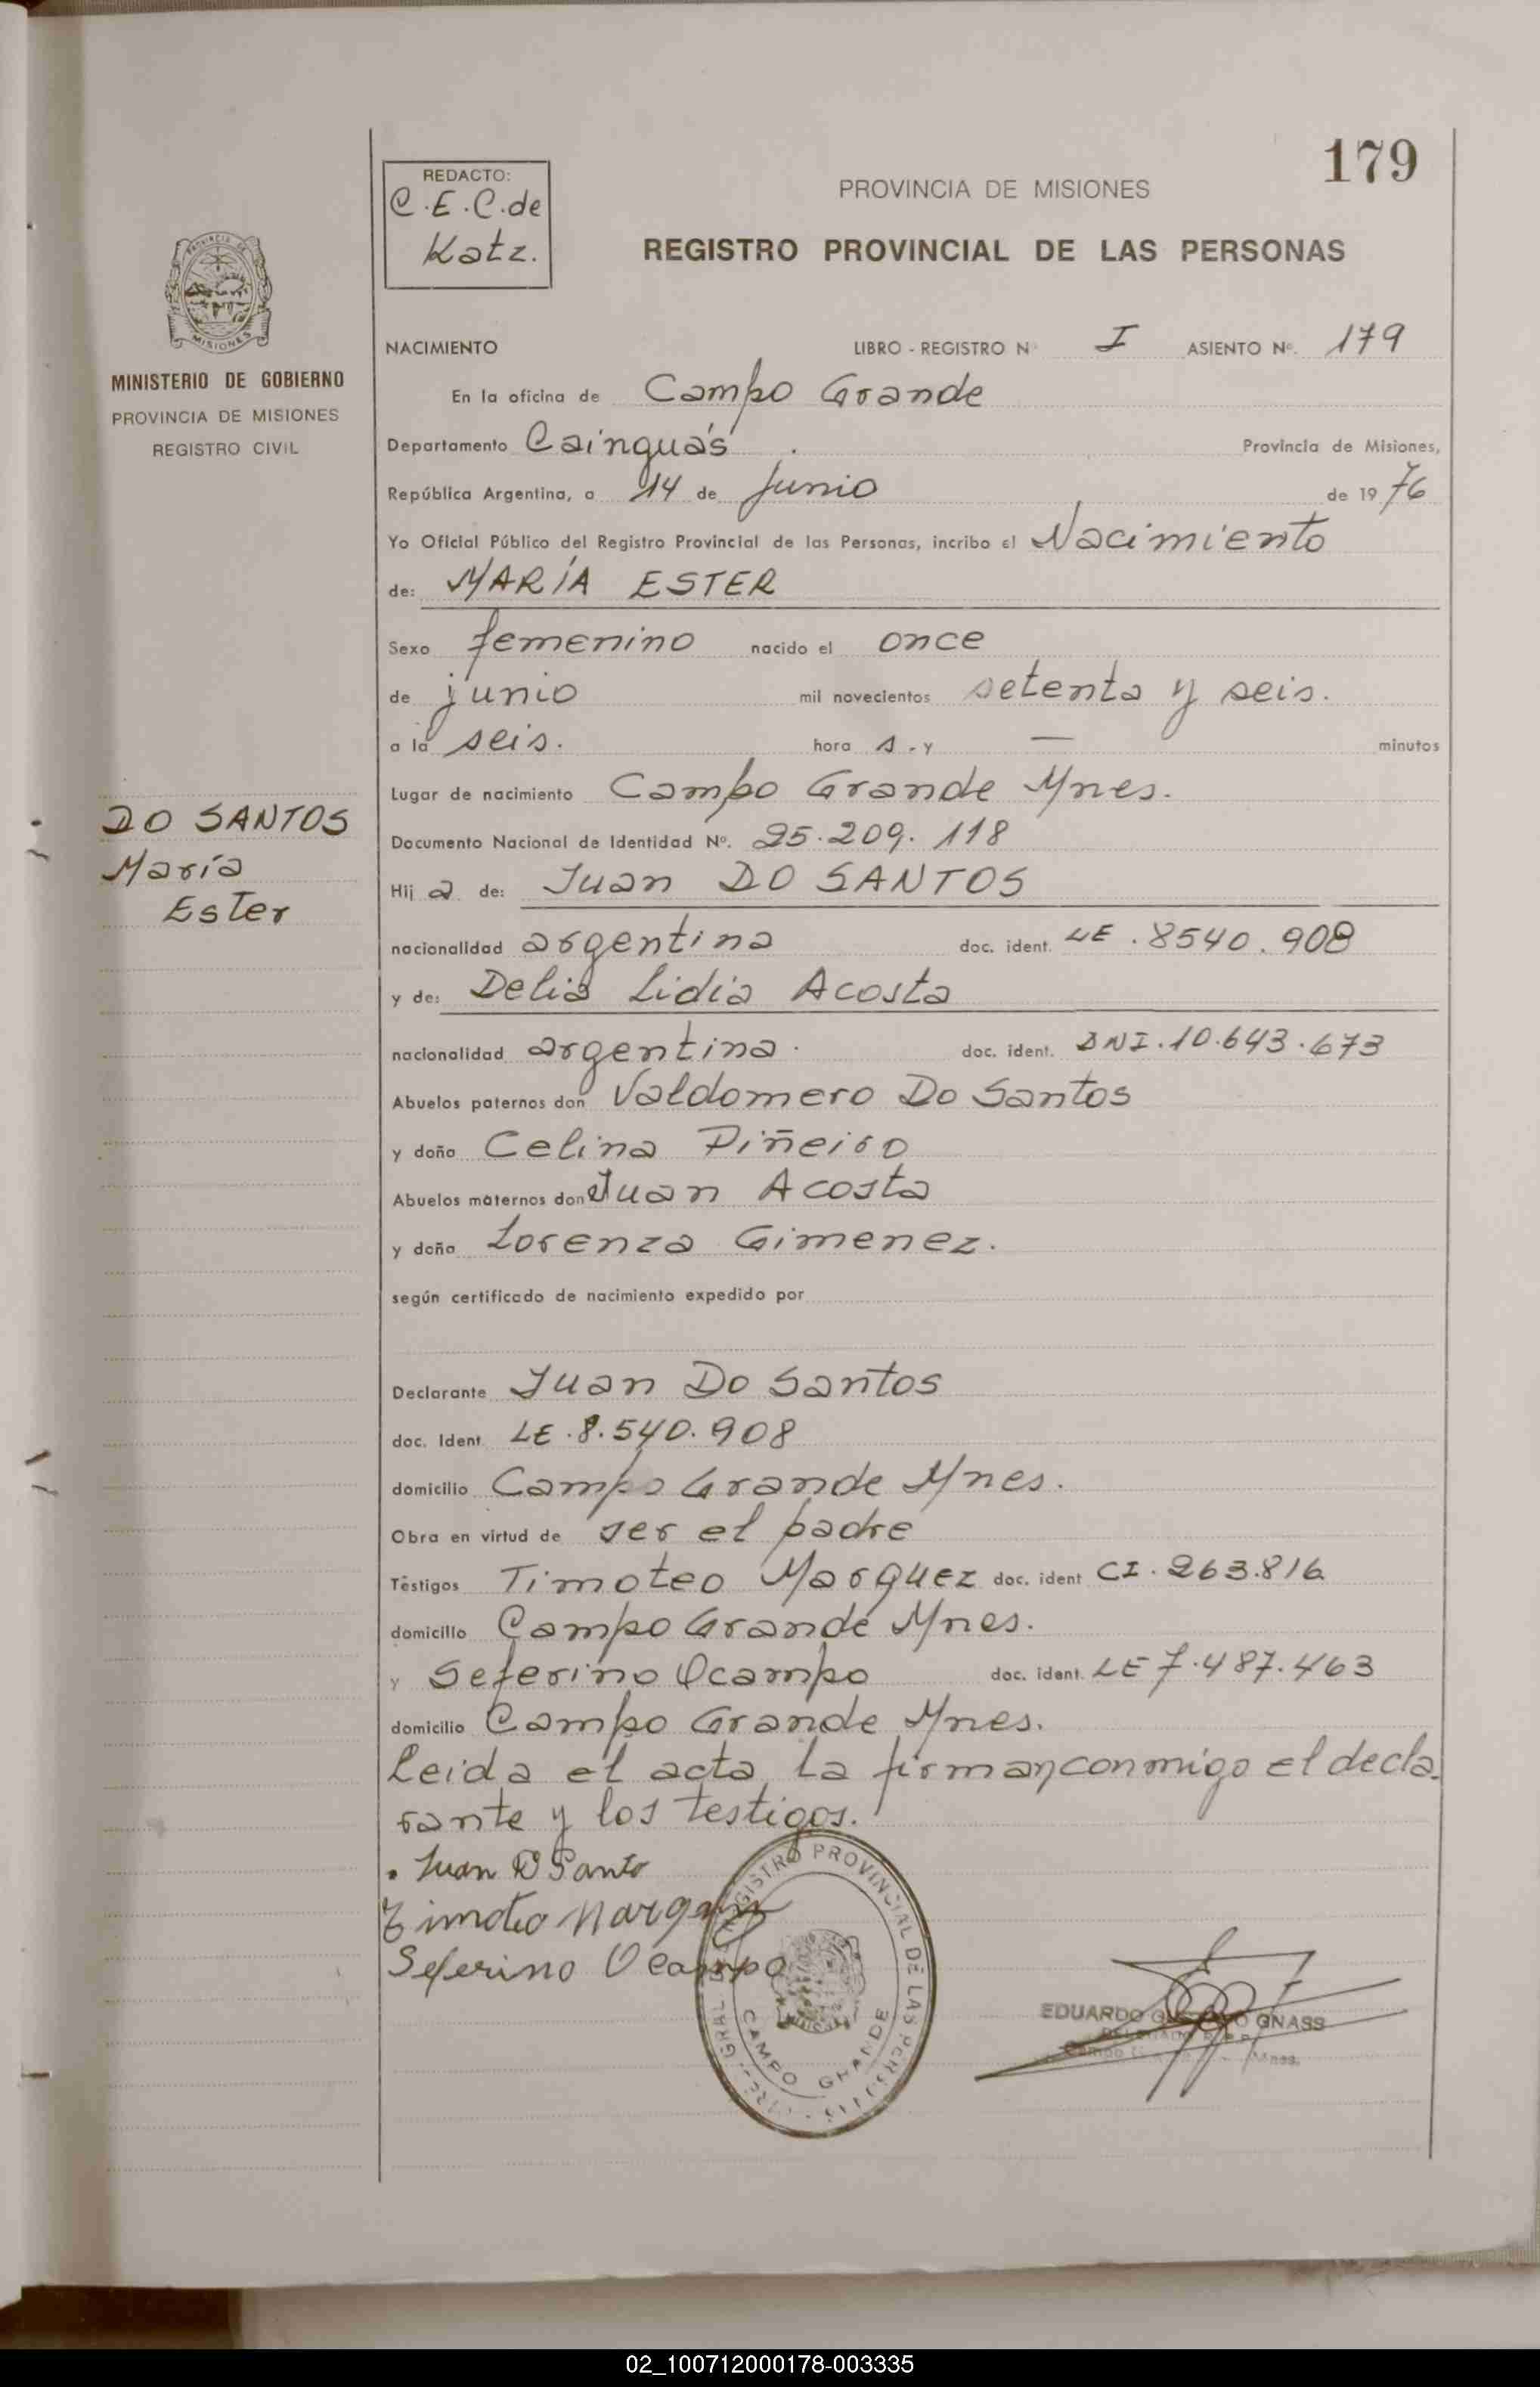 179
REDACTO:
C.E.C. de
Katz.
PROVINCIA DE MISIONES
REGISTRO PROVINCIAL DE LAS PERSONAS
PROVINCIA DE
MISIONES
MINISTERIO DE GOBIERNO
PROVINCIA DE MISIONES
REGISTRO CIVIL
NACIMIENTO LIBRO - REGISTRO Nº I ASIENTO Nº. 179
En la oficina de Campo Grande
Departamento Cainguás . Provincia de Misiones,
República Argentina, a 14 de junio de 1976
Yo Oficial Público del Registro Provincial de las Personas, incribo el Nacimiento
de: MARÍA ESTER
Sexo femenino nacido el once
de junio mil novecientos setenta y seis.
a la seis. hora s. y — minutos
Lugar de nacimiento Campo Grande Mnes.
DO SANTOS
María
Ester
Documento Nacional de Identidad Nº. 25.209.118
Hij a de: Juan DO SANTOS
nacionalidad argentina doc. ident. LE.8540.908
y de: Delia Lidia Acosta
nacionalidad argentina. doc. ident. DNI.10.643.673
Abuelos paternos don Valdomero Do Santos
y doña Celina Piñeiro
Abuelos maternos don Juan Acosta
y doña Lorenza Gimenez.
según certificado de nacimiento expedido por
Declarante Juan Do Santos
doc. Ident LE.8.540.908
domicilio Campo Grande Mnes.
Obra en virtud de ser el padre
Testigos Timoteo Marquez doc. ident CI.263.816
domicilio Campo Grande Mnes.
y Seferino Ocampo doc. ident. LE 7.487.463
domicilio Campo Grande Mnes.
Leida el acta, la firman conmigo el decla-
rante y los testigos.
. Juan D Santo
Timoteo Marquez
Seferino Ocampo
REGISTRO PROVINCIAL DE LAS PERSONAS
CAMPO GRANDE
EDUARDO GNASS
Mnes.
02_100712000178-003335